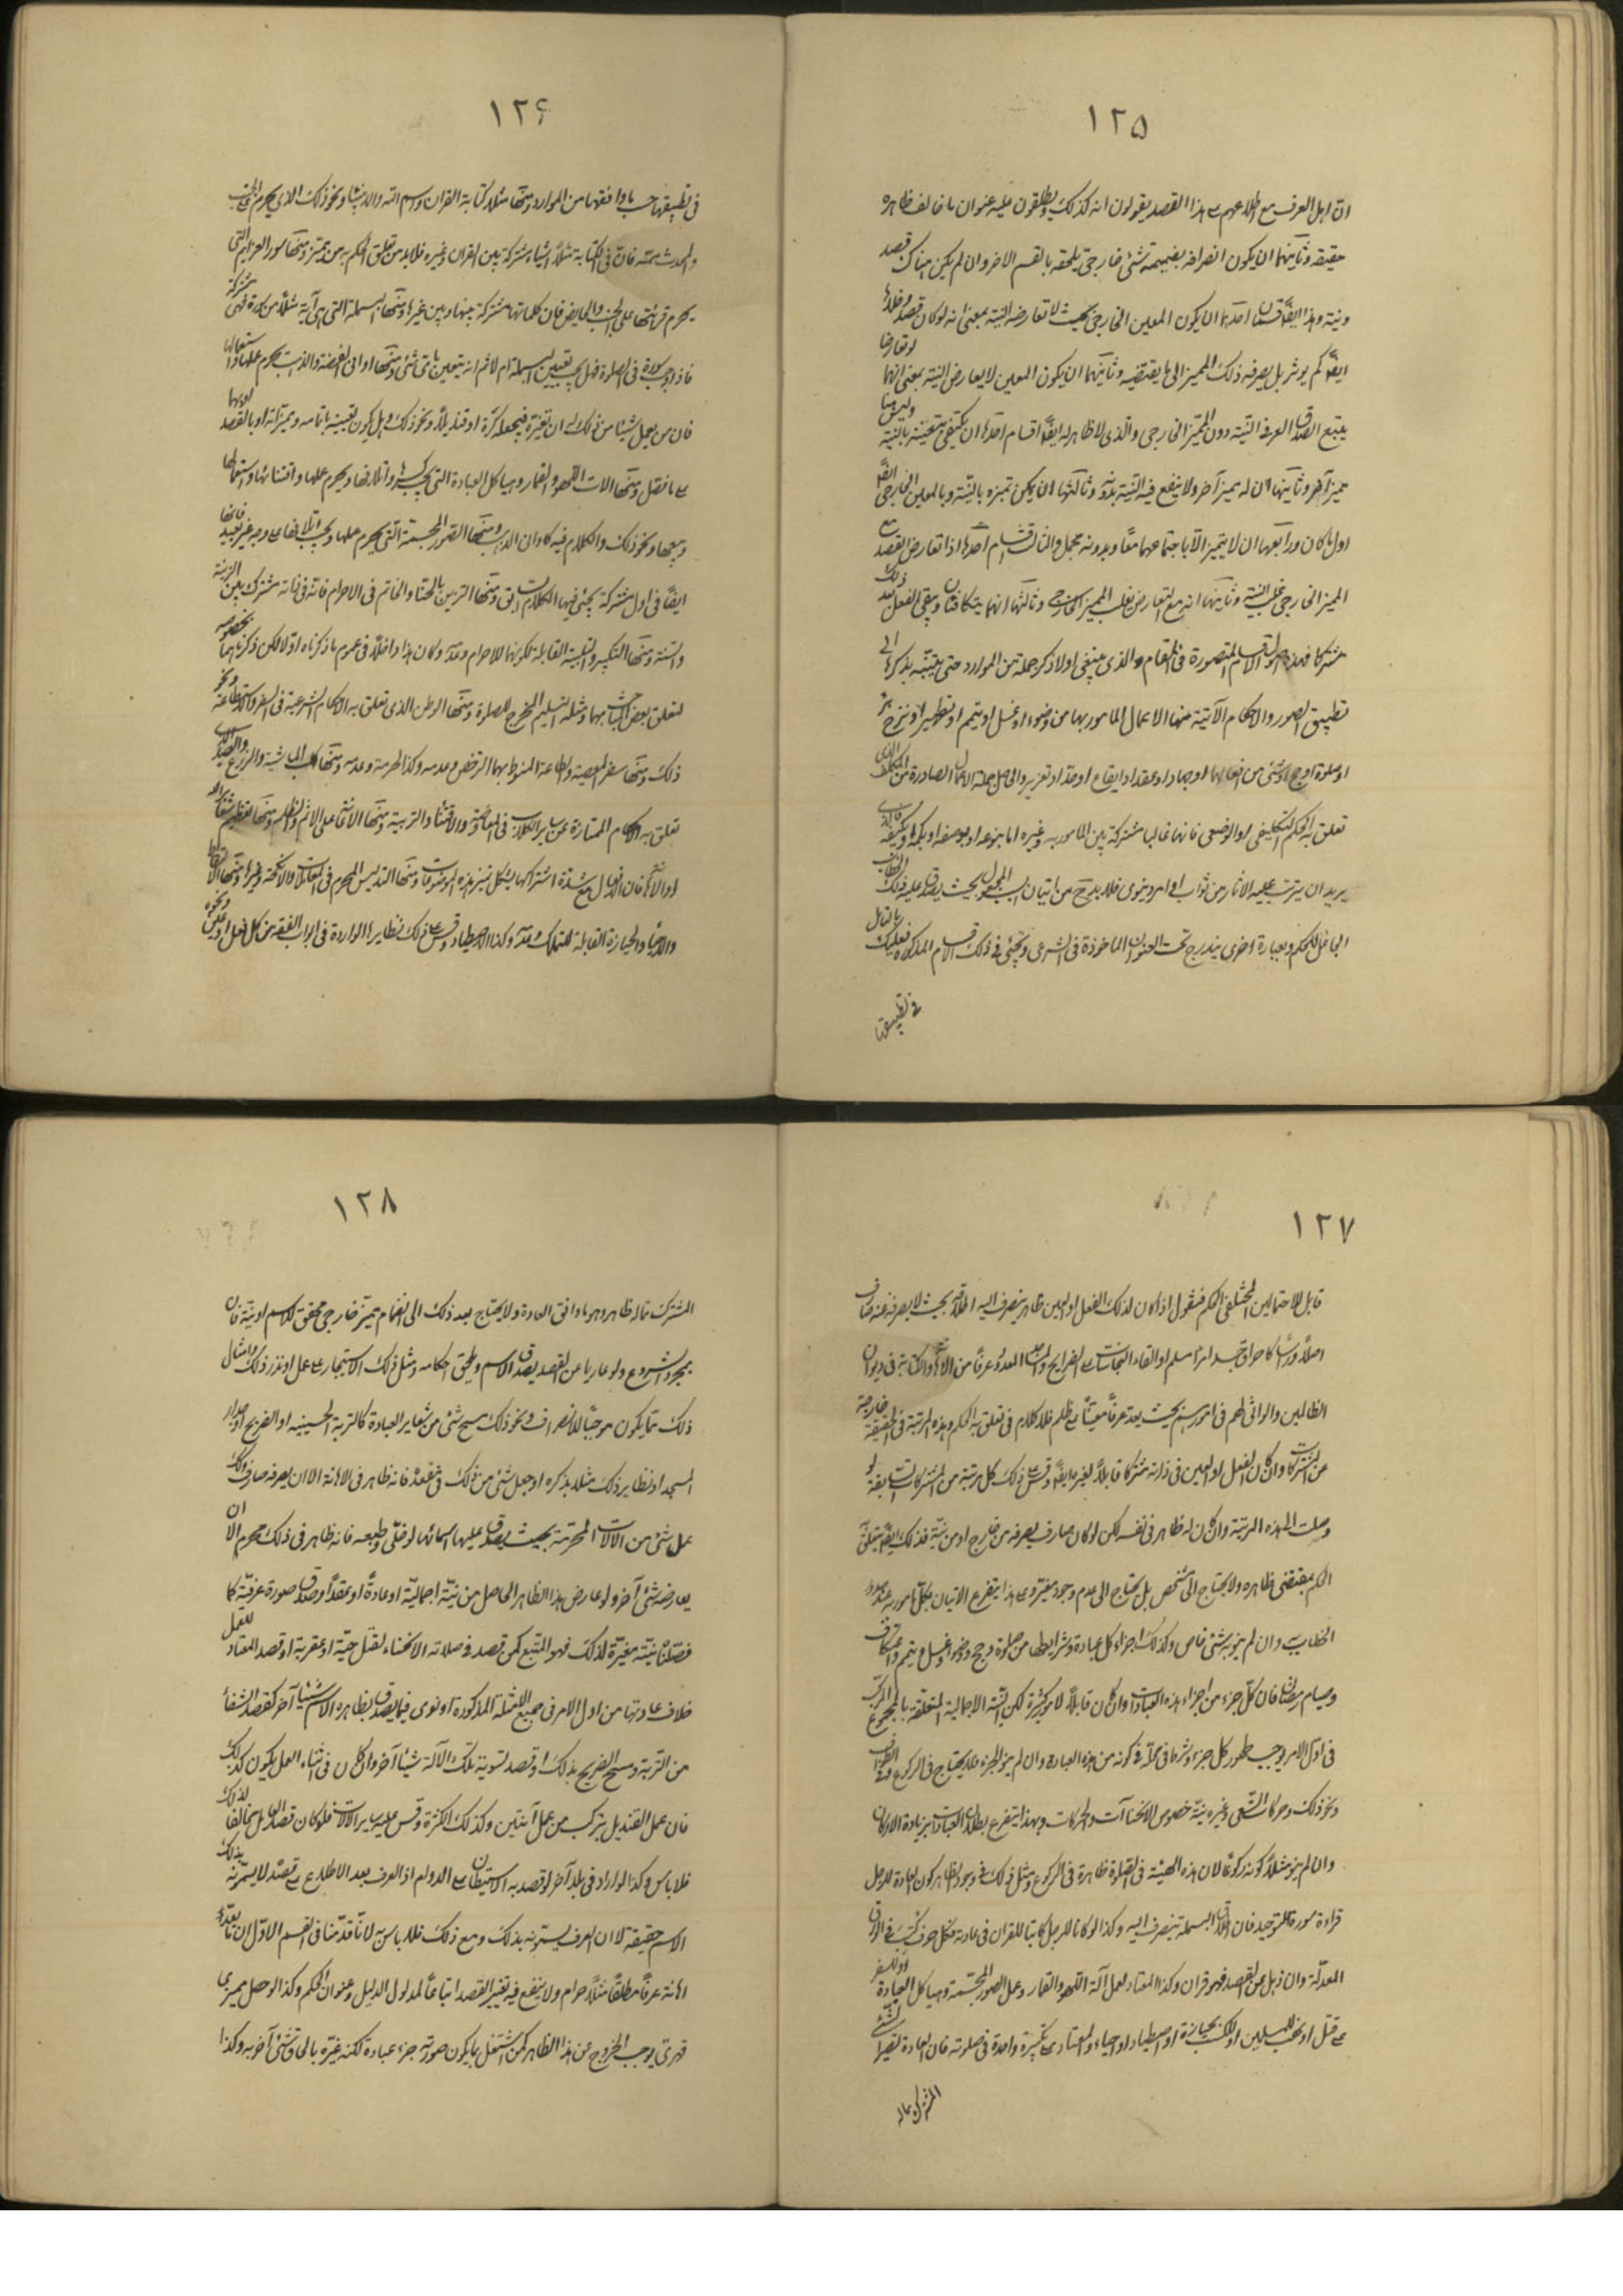 ١٢٥
ان اهل العرف مع اطلاعهم على هذا القصد يقولون انه كذلك ويطلقون عليه عنوان ما خالف ظاهره
حقيقة وثانيهما ان يكون انصرافه بضميمة شئ خارجى يلحقه بالقسم الاخر وان لم يكن هناك قصد
ونية وهذا ايضًا قسمان احدهما ان يكون المعين الخارجى بحيث لا تعارضه النية بمعنى انه لو كان قصد وخلافه
ايضًا لم يؤثر بل يصرفه ذلك المميز الى ما يقتضيه وثانيهما ان يكون المعين لا يعارض النية بمعنى انهما لو تعارضا
يتبع الصدق العرفى النية دون المميز الخارجى والذى لا ظاهر له ايضًا اقسام احدها ان يكتفى بتعيينه بالنية وليس هنا
مميز آخر وثانيها ان له مميز آخر ولا ينفع فيه النية بدونه وثالثها ان يمكن تميزه بالنية وبالمعين الخارجى ايضًا
اول ما كان ورابعها ان لا يتميز الا باجتماعهما معًا وبدونه مجمل والثالث اقسام احدها اذا تعارض القصد مع
المميز الخارجى غلب النية وثانيها انه مع التعارض يغلب المميز الخارجى وثالثها انهما يتكافئان ويبقى الفعل بعد ذلك
مشتركا فهذه هى الاقسام المتصورة فى المقام والذى ينبغى اولا ذكر جملة من الموارد حتى يتنبه بذكرها الى
تطبيق الصور والاحكام الآتية منها الاعمال المأمور بها من وضوء او غسل او تيمم او تطهير او نزح بئر
او صلوة او حج او شئ من افعالهما او جهاد او عقد او ايقاع او حد او تعزير والحاصل جملة الاعمال الصادرة من المكلف الذى
تعلق به الحكم التكليفى او الوضعى فانها غالبا مشتركة بين المأمور به وغيره اما بنوعه او بوصفه او بكمه او بكيفه فالذى
يريد ان يترتب عليه الاثار من ثواب او امر دنيوى فلا بد ح من اتيان بحيث يصدق عليه ذلك
الجاعل للحكم وبعبارة اخرى يندرج تحت العنوان الماخوذة فى الشرع وتجئ فى ذلك الاقسام المذكورة فعليك بالتامل
فى تطبيقها
١٢۶
فى تطبيقها حسب ما وافقها من الموارد ومنها مثلا كتابة القران واسم الله والانبياء ونحو ذلك الذى يحرم على الجنب
والمحدث مسّه فان فى الكتابة مثلا اشياء مشتركة بين القران وغيره فلابد من تعلق الحكم به من مميز ومنها سور العزائم التى
يحرم قرائتها على الجنب والحايض فان كلماتها مشتركة بينها وبين غيرها ومنها البسملة التى هى آية مثلًا من كل سورة وهى مشتركة
فاذا وجب سورة فى الصلوة فهل يجب تعيين البسملة ام لا ثم انه يتعين باى شئ ومنها اوانى الفضة والذهب يحرم عملها واستعمالها
فان من يعمل شيئا من ذلك له ان يغيره فيجعله كرة او قنديلًا ونحو ذلك وهل يكون تعيينه باتمامه وتميزاته او بالقصد
على ما نفصل ومنها الات اللهو والقمار وهياكل العبادة التى يجب كسرها واتلافها ويحرم عملها واقتنائها واستعمالها
وبيعها ونحو ذلك والكلام فيه كاوانى الذهب ومنها الصور المجسمة التى يحرم عملها ويجب اتلافها على وجه غير بعيد فانها
ايضًا فى اول مشتركة يجئ فيها الكلام السابق ومنها التزيين بالحناء والخاتم فى الاحرام فانه فى ذاته مشترك بين الزينة
والسنة ومنها التكبير والتلبية القابلة لكونها للاحرام وعدمه وكان هذا داخلًا فى عموم ما ذكرناه اولا لكن ذكرناهما بخصوصه
لتعلق بعض المباحث بهما ومثله التسليم المخرج للصلوة ومنها الوطن الذى تعلق به الاحكام الشرعية فى السفر والاستطاعة ونحو
ذلك ومنها سفر المعصية والطاعة المنوط بهما الرخص وعدمه وكذا الحرمة وعدمه ومنها كلب الماشية والزرع والصيد الذى
تعلق به الاحكام الممتازة عن ساير الكلاب فى المعاوضة والاقتناء والتربية ومنها الاعانة على الاثم والظلم ومنها تعظيم شعائر الله
او الاهانة فان الافعال مع شدة اشتراكها يشكل تميز هذه الموضوعات ومنها التدليس المحرم فى المعاملات والانكحة وغيرها ومنها الالتقاط
والاحياء والحيازة القابلة للتملك وعدمه وكذا الاصطياد وقس على ذلك نظايرها الواردة فى ابواب الفقه من كل فعل او عين ونحوه
١٢٧
قابل لاحتمالين المختلفى الحكم فنقول اذا كان لذلك الفعل او العين ظاهر ينصرف اليه اطلاقه بحيث لا يصرفه عنه صارف
اصلًا وراسًا كاحراق جسد امرء مسلم او القاء النجاسات على الضرايح المعدود عرفًا من الاهانة او الكتابة فى ديوان
الظالمين والراثى لهم فى امورهم بحيث يعد عرفًا معينًا على ظلم فلا كلام فى تعلق به الحكم وهذه المرتبة فى الحقيقة خارجة
من المشتركات وان كان الفعل او العين فى ذاته مشتركا قابلًا لغير هذا ايضًا وقس على ذلك كل مرتبة من المشتركات السابقة لو
وصلت الى هذه المرتبة وان كان له ظاهر فى نفسه لكن لو كان صارف يصرفه من خارج او من نية فذلك ايضًا يتعلق
الحكم بمقتضى ظاهره ولا يحتاج الى مشخص بل يحتاج الى عدم وجود مغير وعلى هذا يتفرع الاتيان بكل مأمور به عند صدور
الخطاب به وان لم ينو به شئ خاص وكذلك اجزاء كل عبادة وشرايطها من صلوة وحج ووضوء وغسل وتيمم واعتكاف
وصيام رمضان فان كل جزء من اجزاء هذه العبادات وان كان قابلًا لامور كثيرة لكن النية الاجمالية المتعلقة بالمجموع المركب
فى اول الامر يوجب ظهور كل جزء وشرط فى محله فى كونه من هذه العبادة وان لم ينو الجزء فلا يحتاج فى الركوع والطواف
ونحو ذلك وحركات السعى وغيره نية خصوص الانحناآت والحركات وبهذا يتفرع بطلان العبادات بزيادة الاركان
وان لم ينو مثلًا كونه ركوعًا لان هذه الهيئة فى الصلوة ظاهرة فى الركوع ومثل ذلك فى وجود الظاهر كون العادة للرجل
قراءة سورة التوحيد فان اطلاق البسملة ينصرف اليه وكذا لو كان الرجل كاتبا للقران فى عادته فكل حرف كتب فى الاوراق
المعدّة وان ذهل عن القصد فهو قران وكذا المعتاد لعمل آلة اللهو والقمار وعمل الصور المجسمة وهياكل العبادة او للسفر
على قتل او نهب للمسلمين او تملك بحيازة او اصطياد او احياء والمعتاد على تكبيرة واحدة فى صلوته فان العادة تصير الشئ
المشترك ماله
١٢٨
المشترك ماله ظاهر وهو ما وافق العادة ولا يحتاج بعد ذلك الى انضمام مميز خارجى محقق للاسم او نية فان
بمجرد الشروع ولو عاريا عن القصد يصدق الاسم ويلحق احكامه ومثل ذلك الاستيجار على عمل او نذر ذلك وامثال
ذلك مما يكون موجبًا للانصراف ونحو ذلك مسح شئ من شعاير العبادة كالتربة الحسينيه او الضريح او جدار
المسجد او نظاير ذلك مثلا بذكره او جعل شئ من ذلك فى مقعده فانه ظاهر فى الاهانة الا ان يصرفه صارف وكذلك
عمل شئ من الآلات المحرمة بحيث يصدق عليها اسمائها لو خلّى وطبعه فانه ظاهر فى ذلك محرم الا ان
يعارضه شئ آخر ولو عارض هذا الظاهر الحاصل من نية اجمالية او عادة او عقد او صدق صورة عرفية كما
فصلنا نية مغيرة لذلك فهو المتبع كمن قصد فى صلاته الانحناء لقتل حية او عقربة او قصد المعتاد للعمل
خلاف عادتها من اول الامر فى جميع الامثلة المذكورة او نوى فيما يصدق بظاهره الاسم شيئا آخر كقصد الشفاء
من التربة ومسح الضريح بذلك او قصد تسوية تلك الآلة شيئا آخر وان كان فى اثناء العمل يكون كذلك
فان عمل القنديل يتركب من عمل آنيتين وكذلك الكرة وقس عليه ساير الآلات فلو كان قصد العامل مخالفا لذلك
فلا باس وكذا لو اراد فى بلد آخر لو قصد به الاستيطان على الدوام اذ العرف بعد الاطلاع على قصده لا يسمونه بذلك
الاسم حقيقة لا ان العرف يسمونه بذلك ومع ذلك فلا باس به لانا قدمنا فى القسم الاول ان ما يعدّه
اهانة عرفًا مطلقًا مثلًا حرام ولا ينفع فيه تغيير القصد اتباعًا لمدلول الدليل وعنوان الحكم وكذا لو حصل مميز
قهرى يوجب الخروج عن هذا الظاهر كمن اشتغل بما يكون صورته جزء عبادة لكنه غيّره بالحاق شئ آخر به وكذا